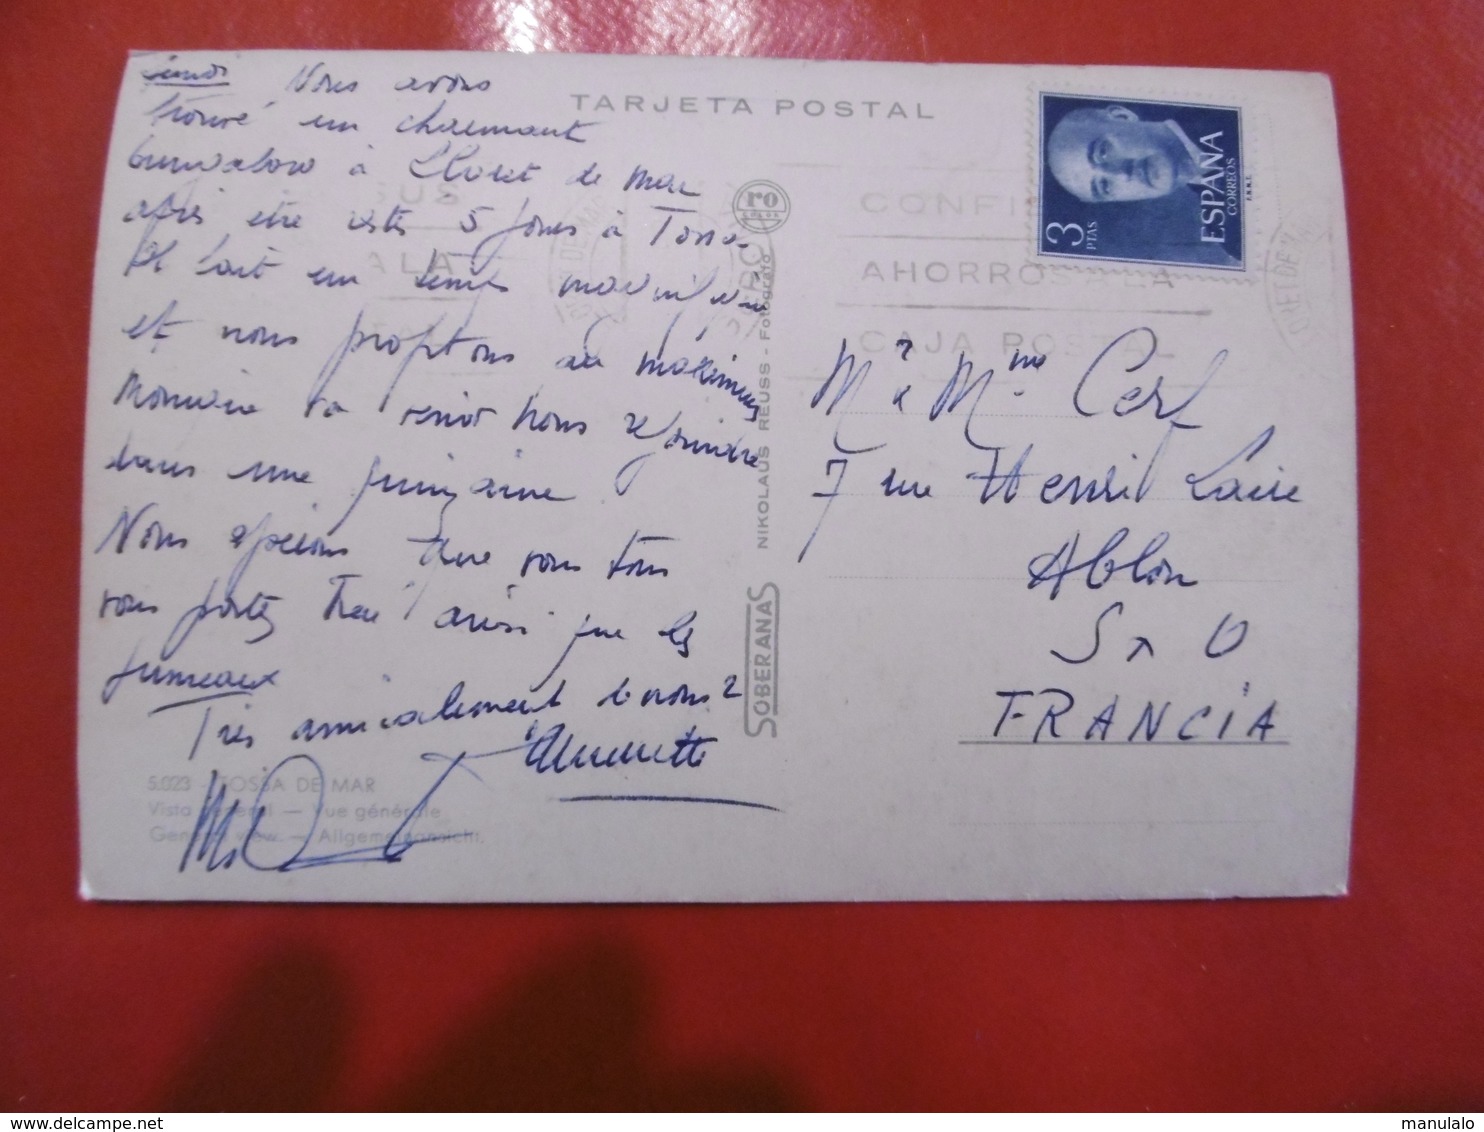 Jeudi Nous avons
trouvé un charmant
bungalow à Lloret de Mar
après être restés 5 jours à Tossa
Il fait un temps merveilleux
et nous profitons au maximum
va venir nous rejoindre
dans une quinzaine
Nous espérons que vous tous
vous portez bien ainsi que les
jumeaux
Très amicalement à vous 2
TARJETA POSTAL
ro
COLOR
NIKOLAUS REUSS - Fotógrafo
SOBERANAS
CONFI
AHORROS A LA
CAJA POSTAL
3
PTAS
ESPAÑA
CORREOS
F.N.M.T.
Mr & Mme Cerf
7 rue Henri Laire
Ablon
S x O
FRANCIA
5.023 - TOSSA DE MAR
Vista general — Vue générale
General view. — Allgemeinansicht.
manulalo